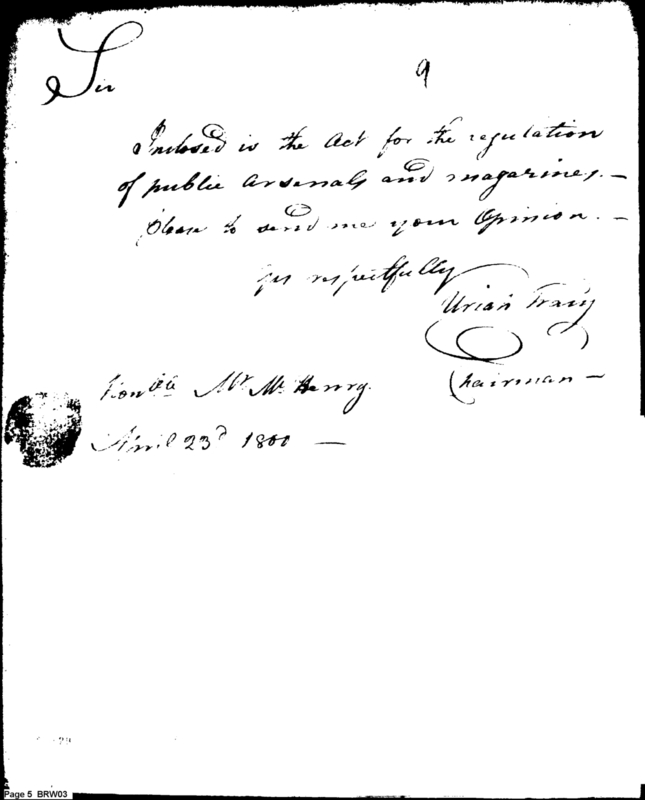 9
Sir
Inclosed is the Act for the regulation
of public Arsenals and magazines. —
please to send me your Opinion. —
yrs respectfully
Uriah Tracy
Chairman —
Honble Mr. McHenry.
April 23d 1800 —
Page 5 BRW03